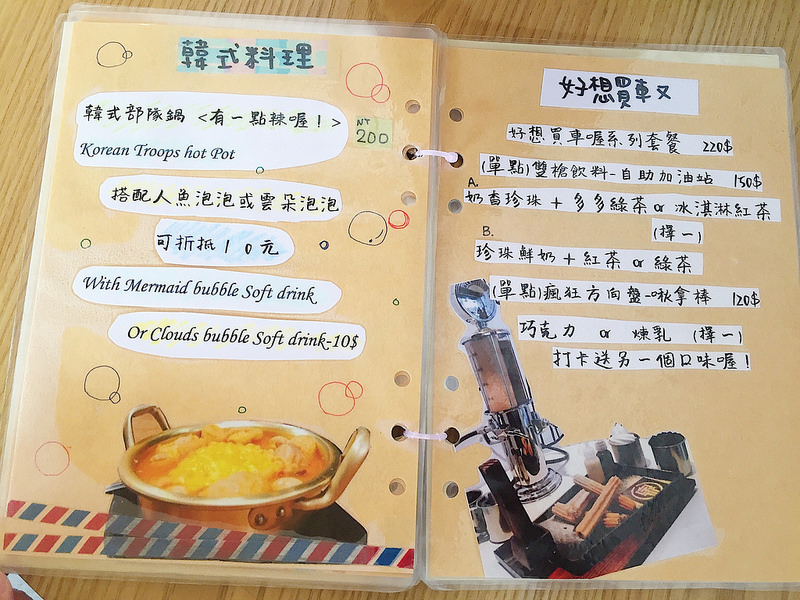 韓式料理
韓式部隊鍋 <有一點辣喔！>
NT 200
Korean Troops hot Pot
搭配人魚泡泡或雲朵泡泡
可折抵10元
With Mermaid bubble Soft drink
Or Clouds bubble Soft drink-10$
好想買車ㄡ
好想買車喔系列套餐 220$
(單點)雙槍飲料-自助加油站 150$
A.
奶香珍珠+多多綠茶 or 冰淇淋紅茶
(擇一)
B.
珍珠鮮奶+紅茶 or 綠茶
(單點)瘋狂方向盤-啾拿棒 120$
巧克力 or 煉乳 (擇一)
打卡送另一個口味喔！